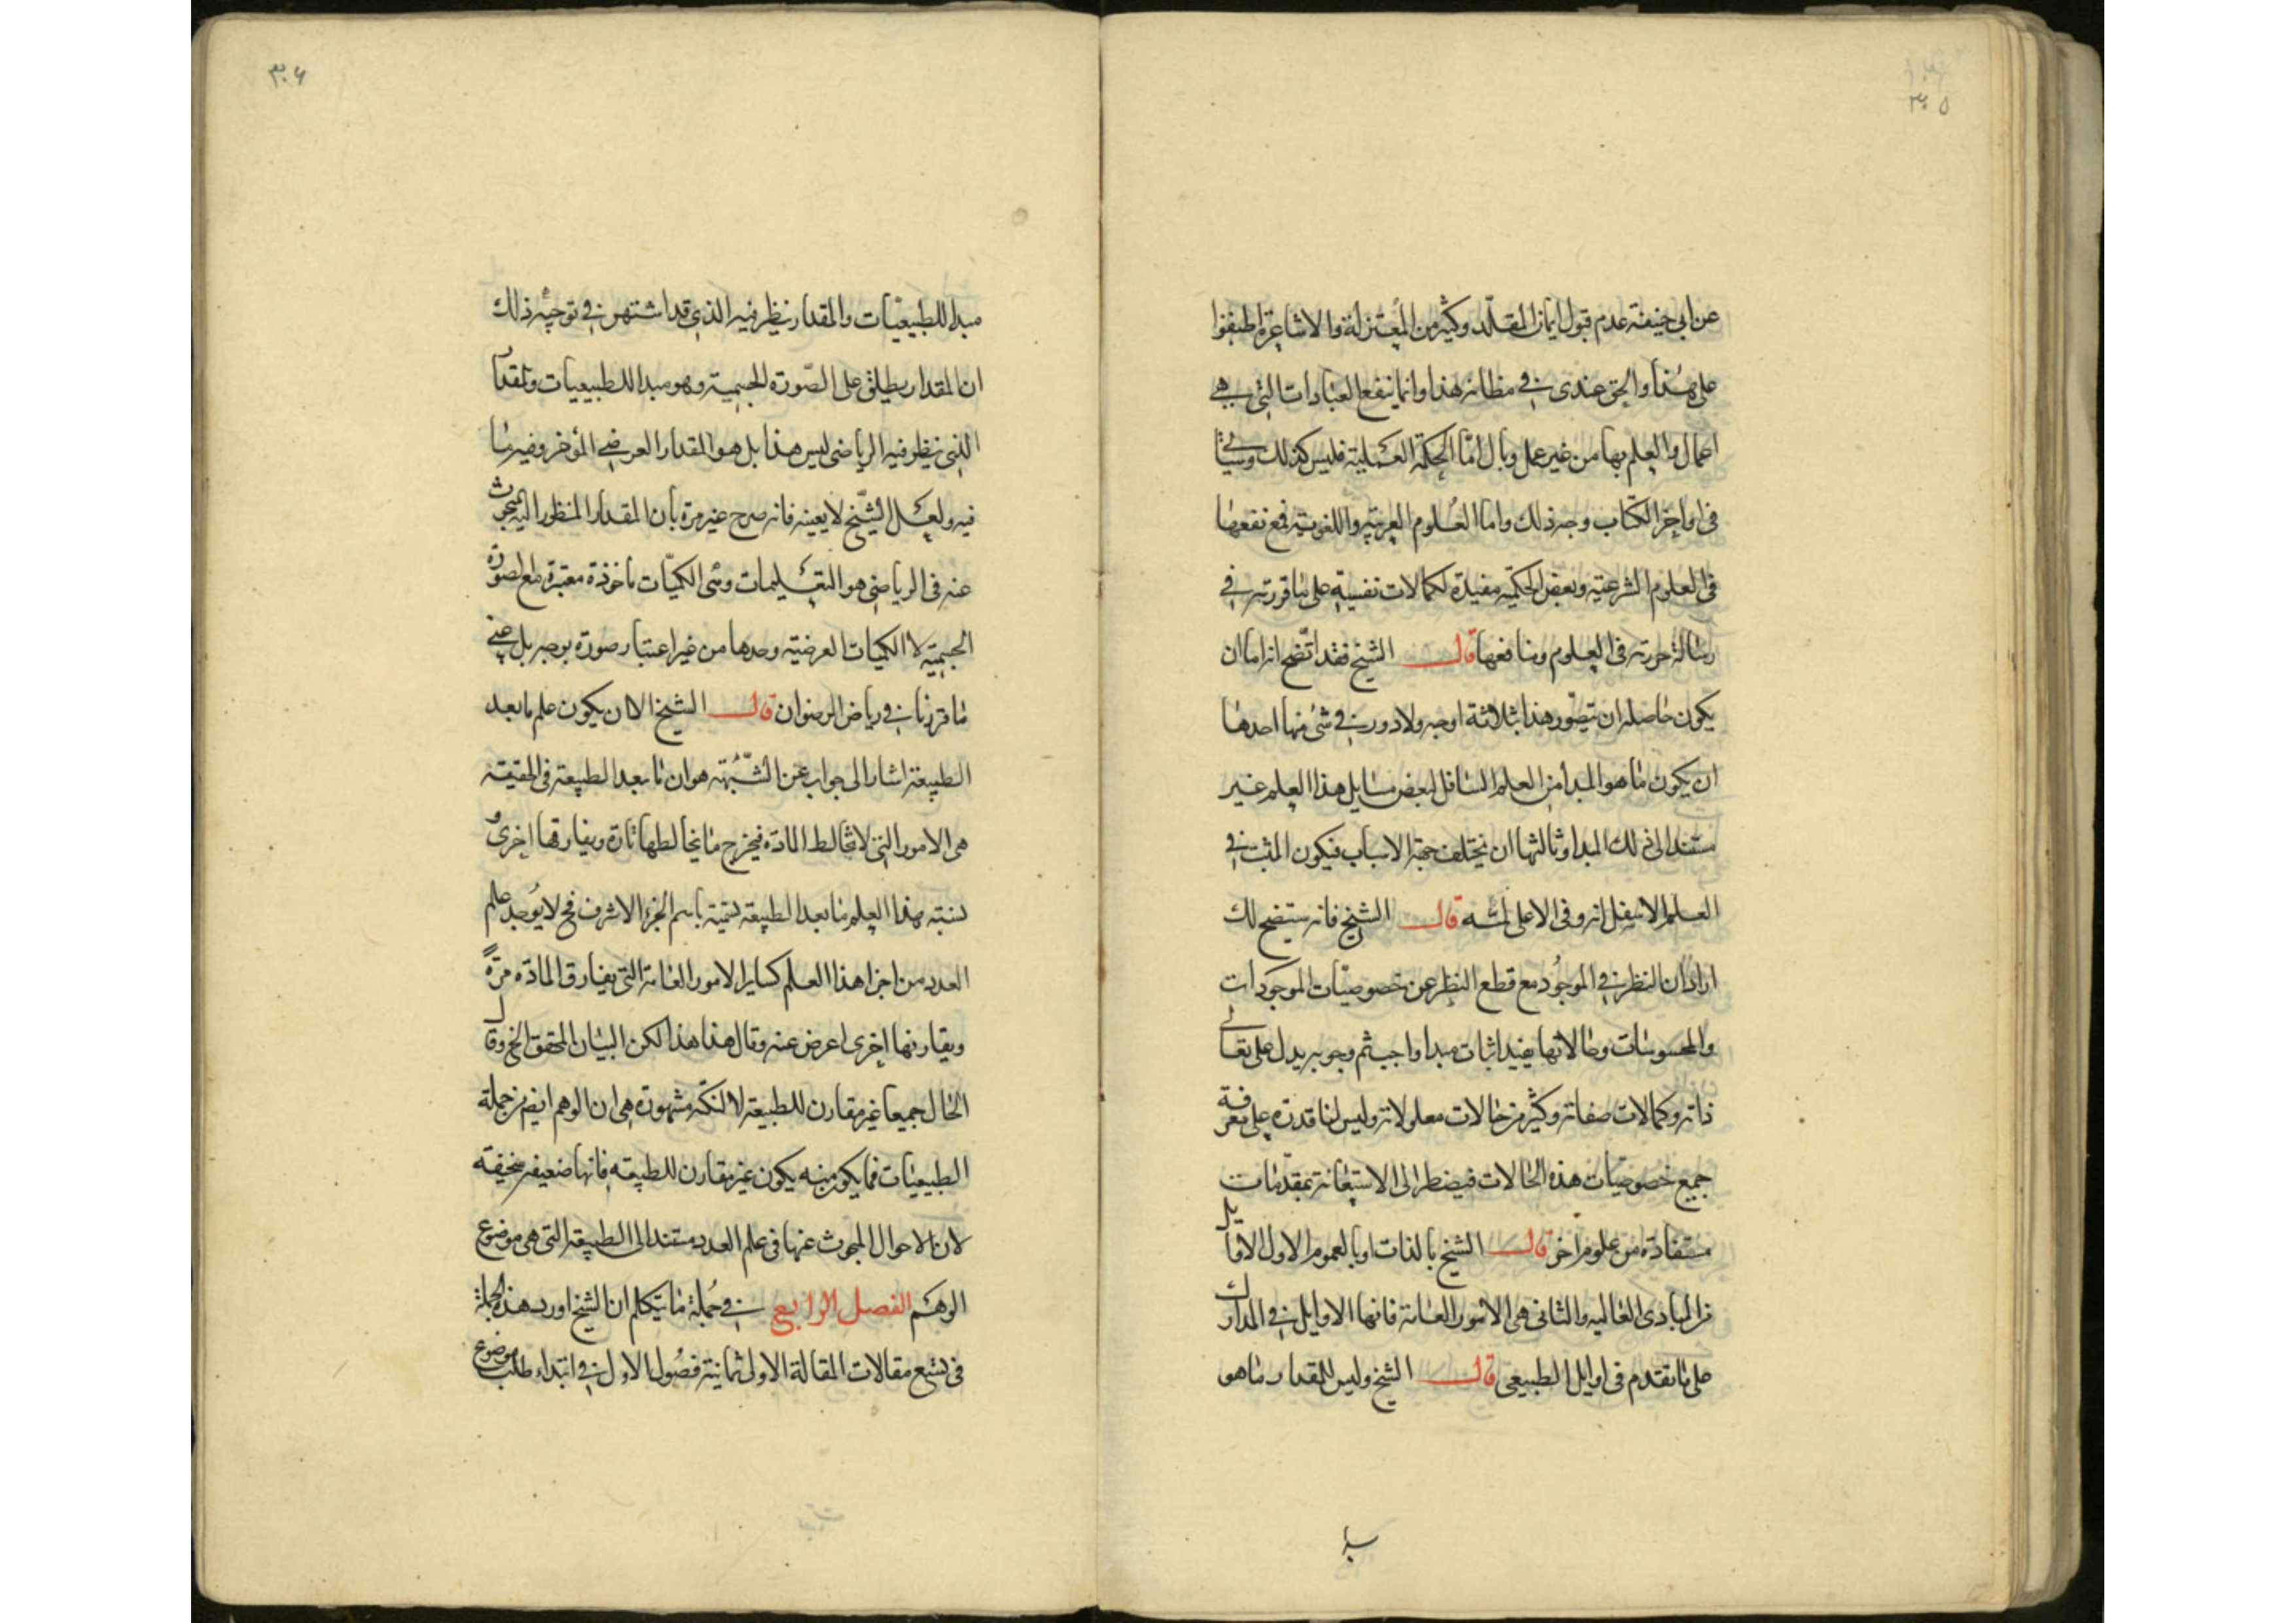 ٣٠٥
عن ابی حنیفة عدم قبول ایمان المقلد وکثیر من المعتزلة والاشاعرة اطبقوا
علی هذا والحق عندی فی مظانه هذا وانما ینفع العبادات التی هی
اعمال والعلم بها من غیر عمل وبال امّا الحکمة العملیة فلیس کذلک وسیاتی
فی اواخر الکتاب وجه ذلک واما العلوم العربیة واللغویة فمع نفعها
فی العلوم الشرعیة وبعض الحکمیة مفیدة لکمالات نفسیة علی ما قررته فی
رسالة حررته فی العلوم ومنافعها قال الشیخ فقد اتضح انه اما ان
یکون حاصله ان یتصور هذا بثلاثة اوجه ولا دور فی شئ منها احدها
ان یکون ما هو المبدأ من العلم السافل لبعض مسایل هذا العلم غیر
مستند الی ذلک المبدا وثالثها ان یختلف جهة الاسباب فیکون المثبت فی
العلم الاسفل انه وفی الاعلی لمّه قال الشیخ فانه ستیضح لک
اراد ان النظر فی الموجود مع قطع النظر عن خصوصیات الموجودات
والمحسوسات وحالاتها یفید اثبات مبدا واجب ثم وجوبه یدل علی تعالی
ذاته وکمالات صفاته وکثیر من حالات معلولاته ولیس لنا قدرة علی معرفة
جمیع خصوصیات هذه الحالات فیضطر الی الاستعانة بمقدمات
مستفادة من علوم اخر قال الشیخ بالذات او بالعموم الاول الاوایل
من المبادی العالیه والثانی هی الامور العامة فانها الاوایل فی المدارک
علی ما تقدم فی اوایل الطبیعی قال الشیخ ولیس للمقدار ما هو
٣٠۶
مبدا للطبیعیات والمقدار ینظر فیه الذی قد اشتهر فی توجیه ذلک
ان المقدار یطلق علی الصورة الجسمیة وهو مبدا للطبیعیات والمقدار
الذی ینظر فیه الریاضی لیس هذا بل هو المقدار العرضی المؤخر وفیه ما
فیه ولعل الشیخ لا یعینه فانه صرح غیر مرة بان المقدار المنظور الیه المبحوث
عنه فی الریاضی هو التعلیمات وهی الکمیات ماخوذة معتبرة مع الصورة
الجسمیة لا الکمیات العرضیة وحدها من غیر اعتبار صورة بوجه بل
ما قررنا فی ریاض الرضوان قال الشیخ الا ان یکون علم ما بعد
الطبیعة اشار الی جواب عن الشبهة هو ان ما بعد الطبیعة فی الحقیقة
هی الامور التی لا تخالط المادة فیخرج ما یخالطها تارة ویفارقها اخری و
نسبته هذا العلم ما بعد الطبیعة تسمیة باسم الجزء الاشرف فح لا یوجد علم
العدد من اجزا هذا العلم کسایر الامور العامة التی یفارق المادة مرّةً
ویقارنها اخری اعرض عنه وقال هذا هذا لکن البیان المحقق الخ وقال
الحال جمیعا غیر مقارن للطبیعة لا لنکتة مشهورة هی ان الوهم ایضا من جملة
الطبیعیات فما یکون منه یکون غیر مقارن للطبیعة فانها ضعیفة سخیفة
لان الاحوال المبحوث عنها فی علم العدد مستند الی الطبیعة التی هی موضوع
الوهم الفصل الرابع فی جملة ما یتکلم ان الشیخ اورد هذه الجملة
فی تسع مقالات المقالة الاولی ثمانیة فصول الاول فی ابتداء طلب موضوع